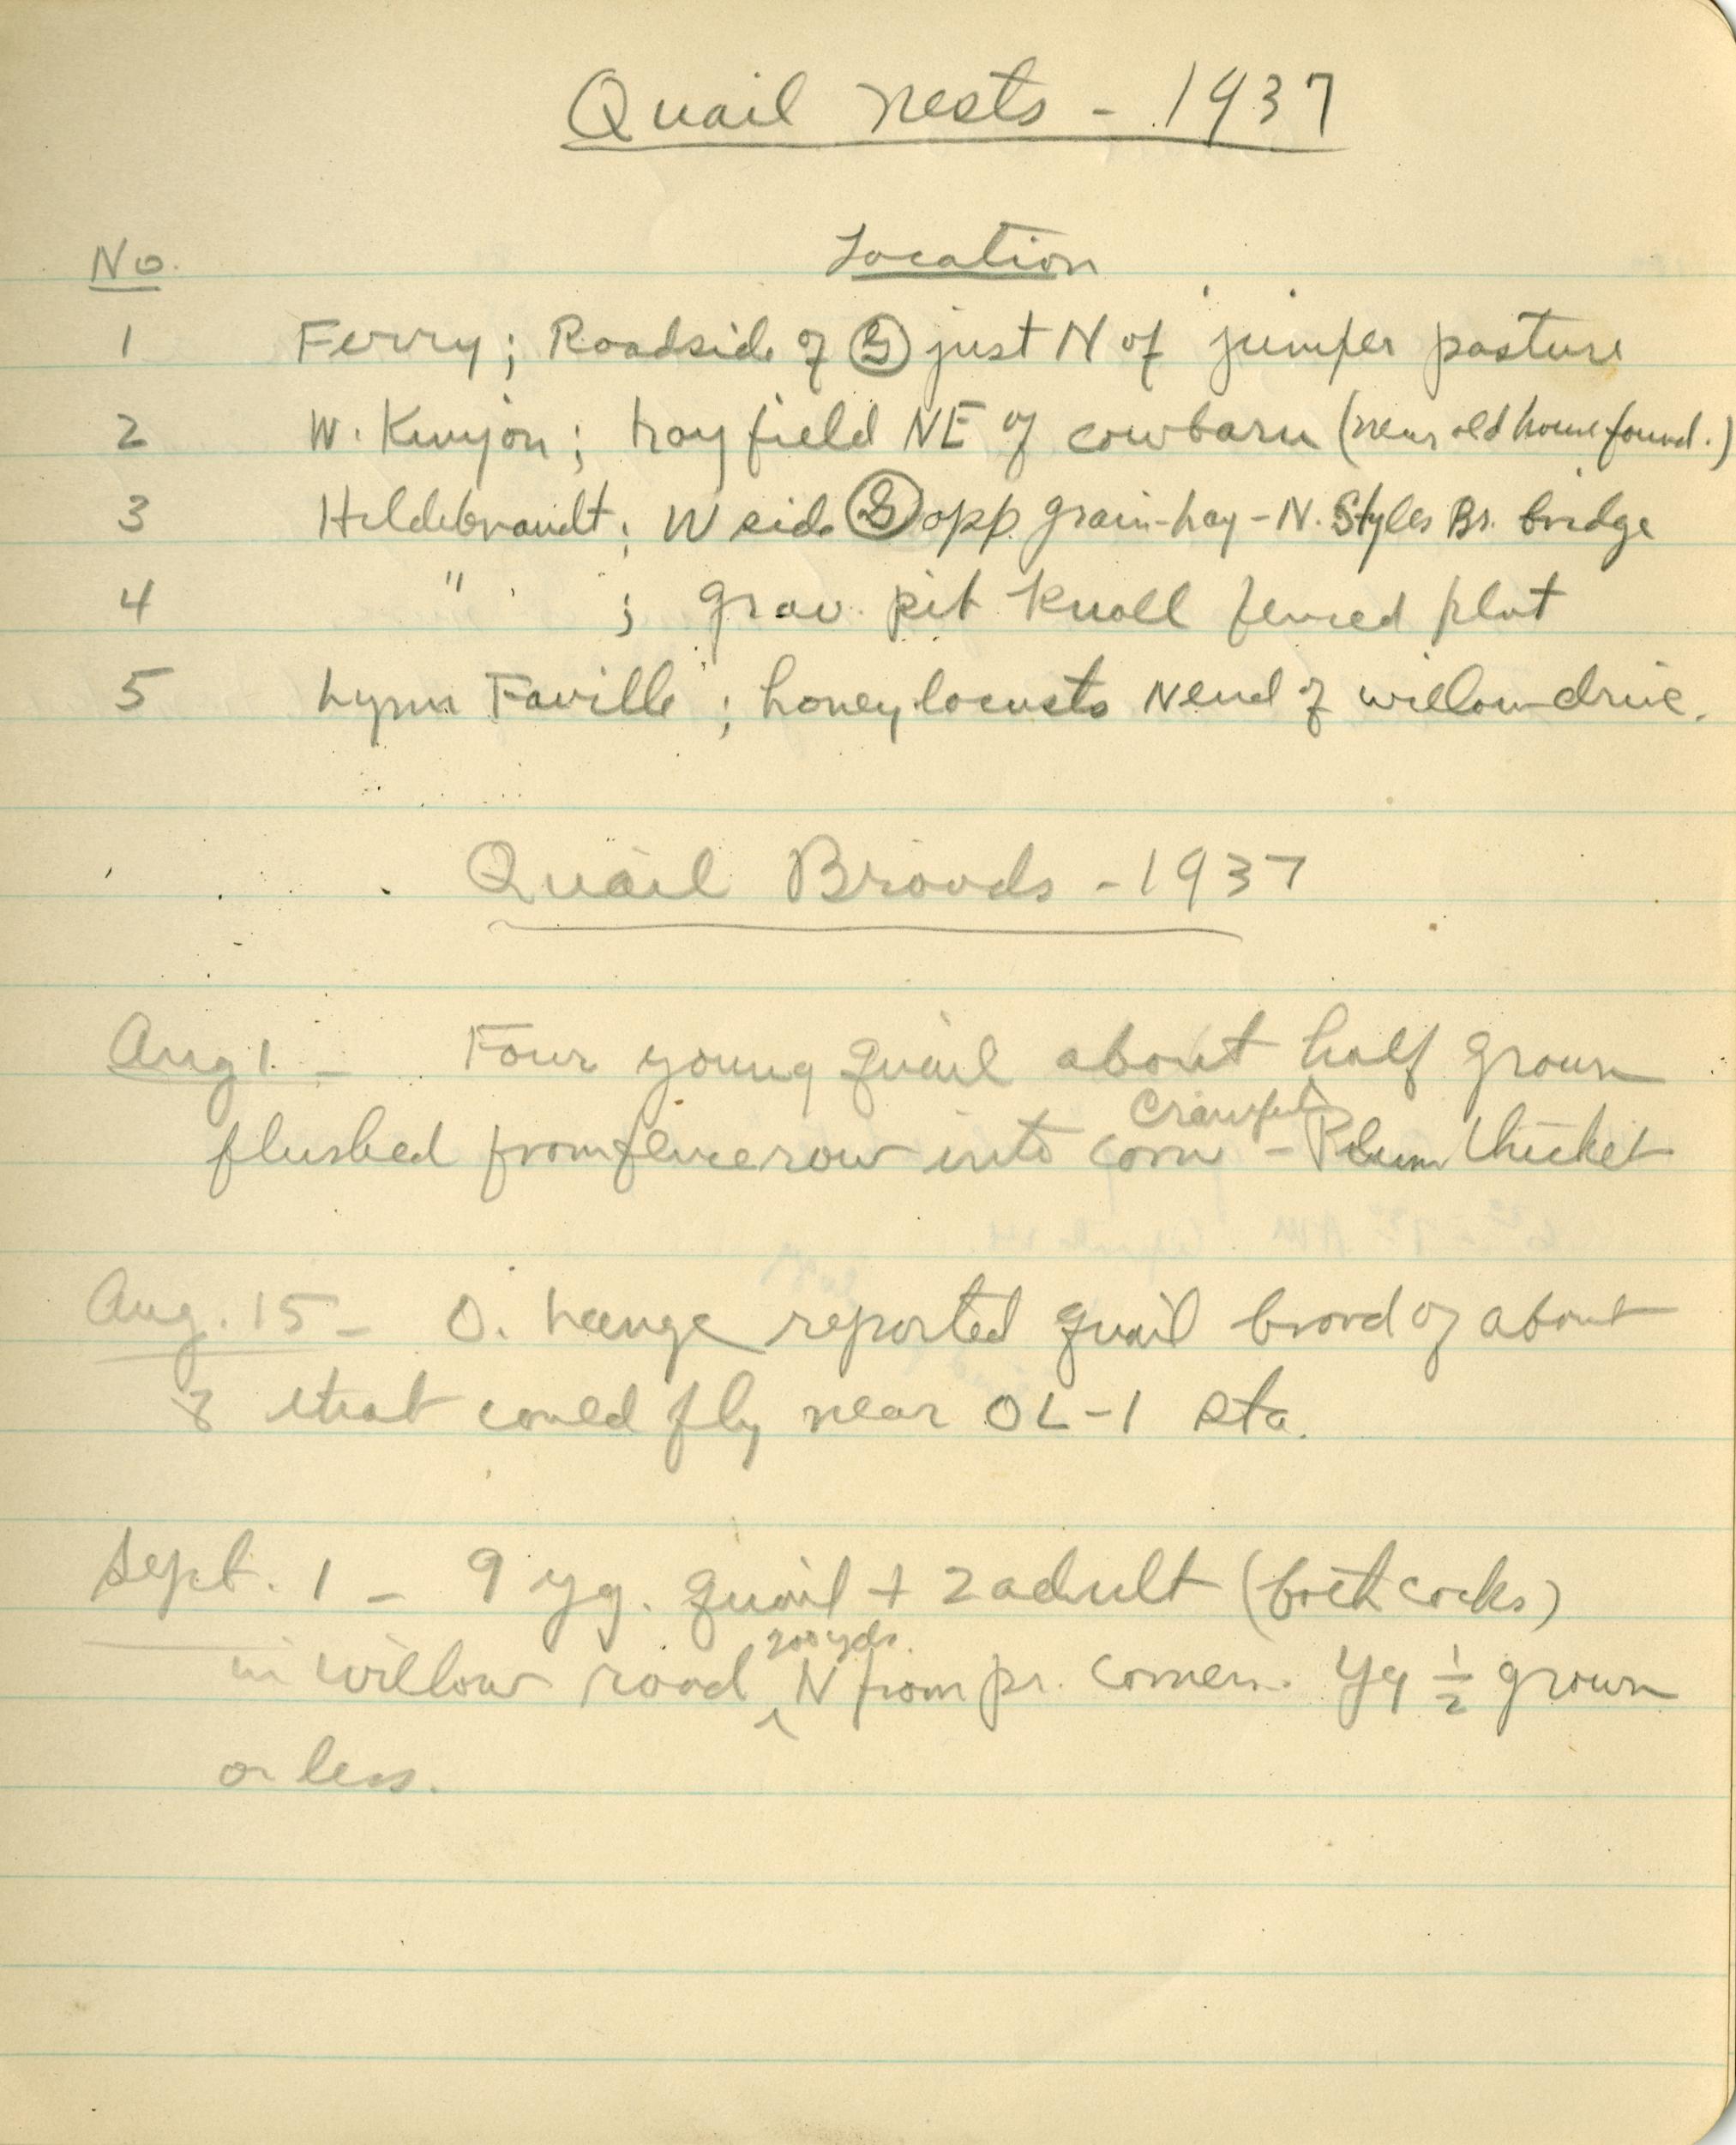 Quail Nests - 1937
No. Location
1 Ferry; Roadside of G just N of jumper pasture
2 W. Kunjon; hay field NE of cowbarn (near old house found.)
3 Hildebrandt; W side G opp. grain-hay - N. Styles Br. bridge
4 " ; grav. pit knoll fenced plot
5 Lynn Faville; honey locusts N end of willow drive.
Quail Broods - 1937
Aug 1. - Four young quail about half grown
flushed from fencerow into corn - Plum thicket
Aug. 15 - O. Lange reported quail brood of about
8 that could fly near OL-1 sta.
Sept. 1 - 9 yg. quail + 2 adult (both cocks)
200 yds.
in willow road N from pr. corner. Yg ½ grown
or less.